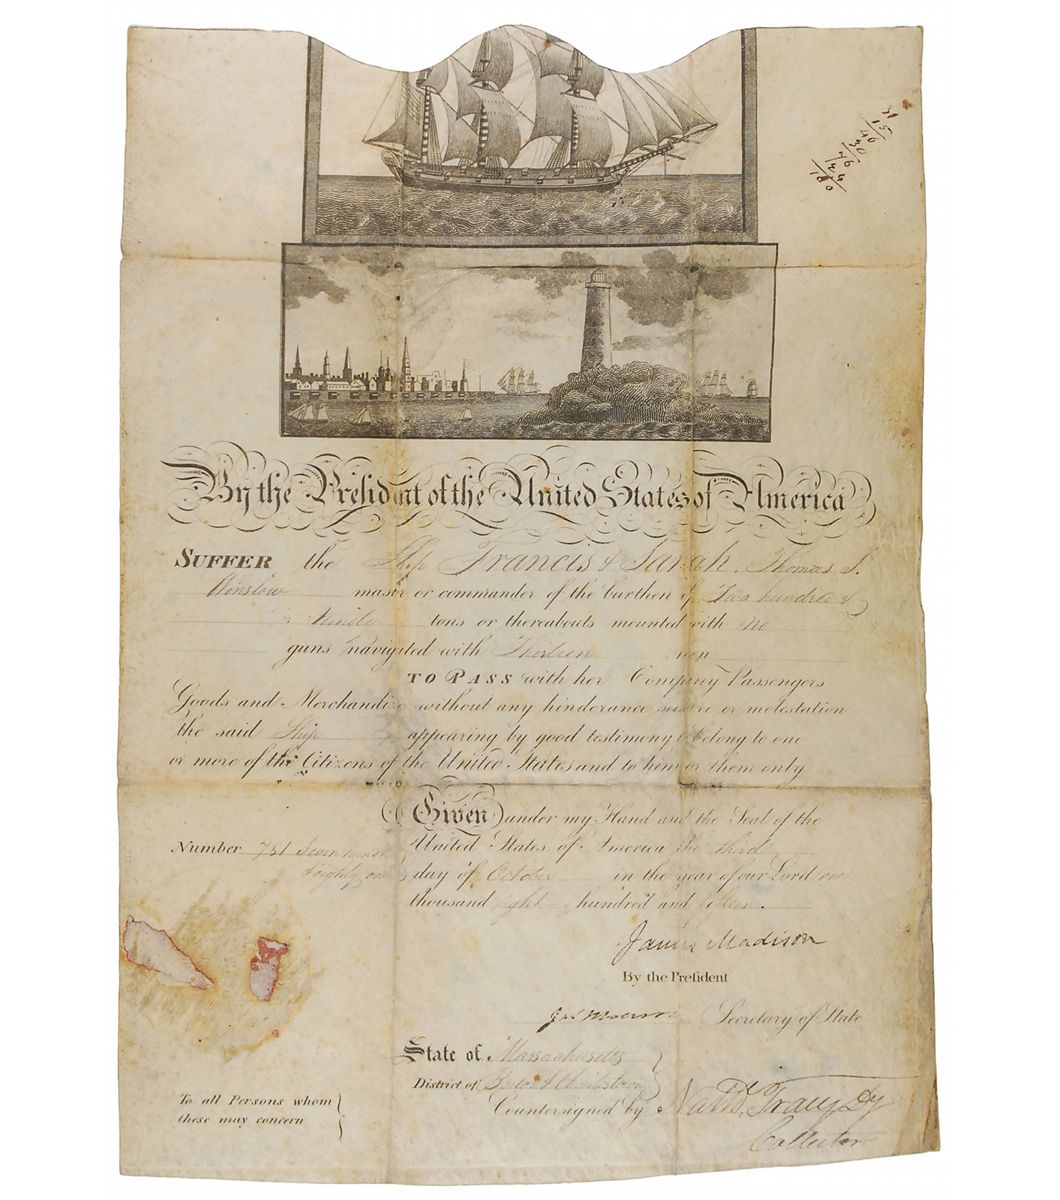 By the President of the United States of America
SUFFER the Ship Francis & Sarah. Thomas S.
Winslow master or commander of the burthen of Two hundred &
Ninety tons or thereabouts mounted with no
guns navigated with Thirteen men
TO PASS with her Company Passengers
Goods and Merchandize without any hinderance seisure or molestation
the said Ship appearing by good testimony to belong to one
or more of the Citizens of the United States and to him or them only
Given under my Hand and the Seal of the
United States of America the third
day of October in the year of our Lord one
thousand eight hundred and fifteen.
Number 781 Seven hundred
& eighty one
James Madison
By the President
Jas Monroe Secretary of State
State of Massachusetts
District of Boston & Charlestown
Countersigned by Nathl. Dy
Collector
To all Persons whom
these may concern